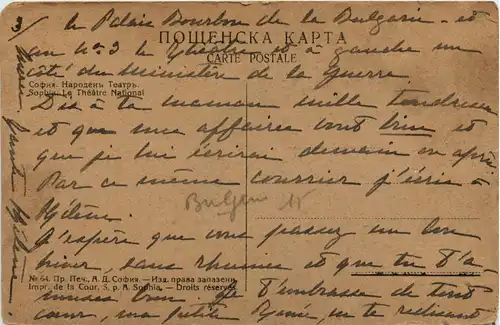 3/ le Palais Bourbon de la Bulgarie - et
au No 3 le Théâtre et à gauche un
ПОЩЕНСКА КАРТА
CARTE POSTALE
côté du Ministère de la Guerre.
София. Народенъ Театръ.
Sophia. Le Théâtre National
Dis à ta maman mille tendresses
et que mes affaires vont bien et
que je lui écrirai demain ou après
Par ce même courrier j'écris à
Hélène.
Bulgarie
J'espère que vous passez un bon
hiver, sans rhumes et que tu t'a
№ 64. Пр. Печ. А. Д. София. — Изд. права запазени.
Impr. de la Cour, S. p. A. Sophia. — Droits réservés
muses bien. Je t'embrasse de tout
cœur, ma petite en te redisant